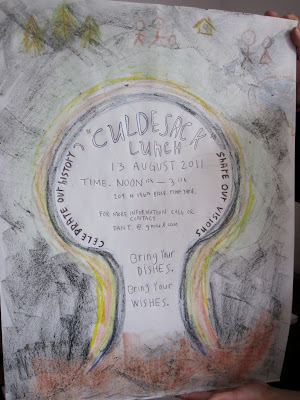 CELEBRATE OUR HISTORY &
SHARE OUR VISIONS
"CULDESACK"
LUNCH
13 AUGUST 2011
TIME: NOON
FOR MORE INFORMATION CALL OR
CONTACT
Bring Your
DISHES.
Bring Your
WISHES.